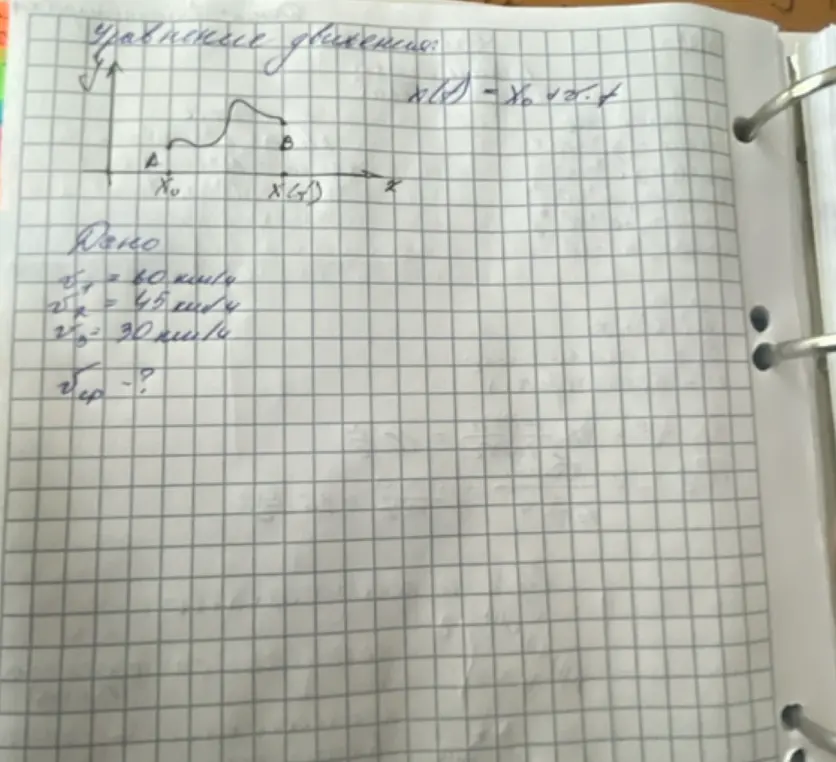 Уравнение движения:
y
x(t) = x₀ + v·t
A
B
x₀
x(t)
x
Дано
v₁ = 60 км/ч
v₂ = 45 км/ч
v₃ = 30 км/ч
vср - ?